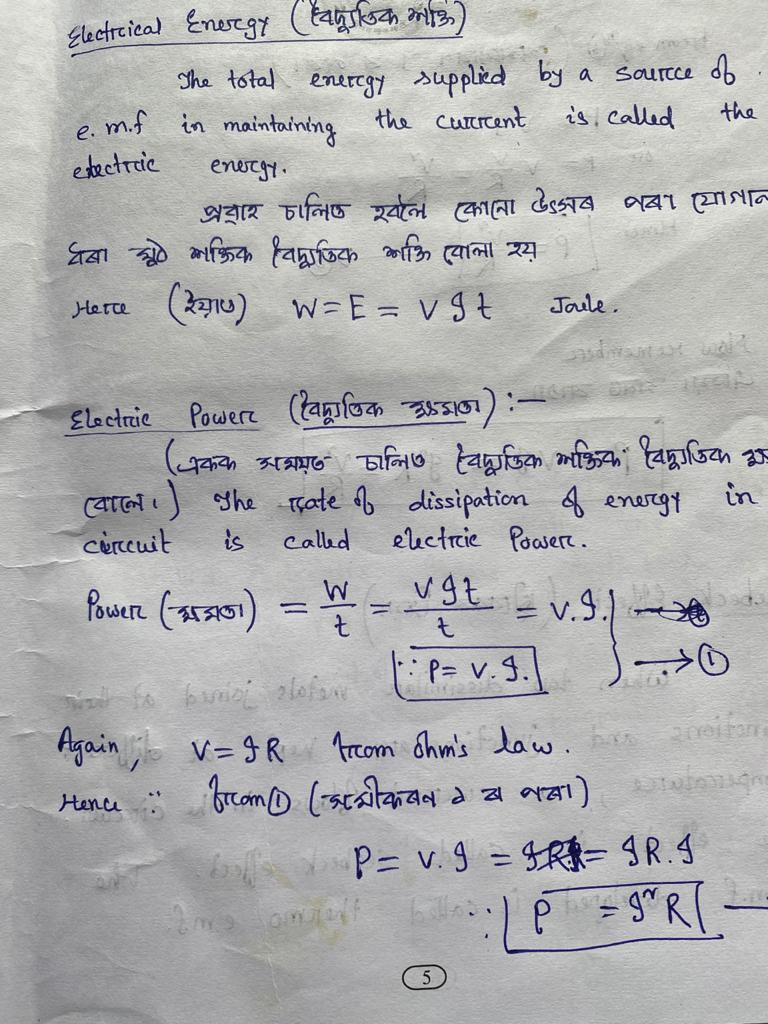 Electrical Energy (বৈদ্যুতিক শক্তি)
The total energy supplied by a source of
e.m.f in maintaining the current is called the
electric energy.
প্ৰবাহ চালিত হবলৈ কোনো উৎসৰ পৰা যোগান
ধৰা মুঠ শক্তিক বৈদ্যুতিক শক্তি বোলা হয়
Here (ইয়াত) W = E = V I t Joule.
Electric Power (বৈদ্যুতিক ক্ষমতা) :-
(একক সময়ত চালিত বৈদ্যুতিক শক্তিক বৈদ্যুতিক
বোলে।) The rate of dissipation of energy in
circuit is called electric Power.
Power (ক্ষমতা) = W/t = VIt/t = V.I.
∵ P = V.I. → ①
Again, V = IR from ohm's law.
Hence ∵ from ① (সমীকৰণ ১ ৰ পৰা)
P = V.I = IR.I
∵ P = I²R
5